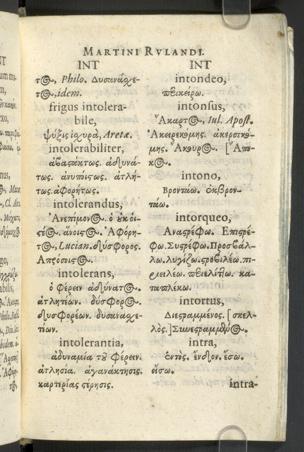 MARTINI RVLANDI.
INT
τος, Philo. Δυσανάχε-
τος, idem.
frigus intolera-
bile,
ψύξις ἰσχυρὰ, Aretæ.
intolerabiliter,
ἀβαστάκτως. ἀδυνά-
τως. ἀνυποίστως. ἀτλή-
τως. ἀφορήτως.
intolerandus,
οἰστός. ἄνοιστος. Ἀφόρη-
τος, Lucian. δύσφορος.
intolerans,
ὁ φέρειν ἀδύνατος.
ἀτλητίων. δύσφορος.
δυσφορέων. δυσανασχε-
τίων.
intolerantia,
ἀδυναμία τοῦ φέρειν.
ἀτλησία. ἀγανάκτησις.
καρτερίας στέρησις.
INT
intondeo,
περικείρω.
intonsus,
Ἄκαρτος, Iul. Apost.
Ἀκειρεκόμης. ἀκερσεκό-
μης. Ἄκουρος.
intono,
Βροντάω. ἐκβρον-
τάω.
intorqueo,
Αναστρέφω. Επιστρέ-
φω. Συστρέφω. Προσβάλ-
λω. λυγίζω. στροβιλέω. πε-
ριειλέω. περιελίττω. κα-
ταπλέκω.
intortus,
Διεστραμμένος. [σκελ-
λός.] Συνεστραμμένος.
intra,
ἐντός. ἔνδον. ἔσω.
εἴσω.
intra-